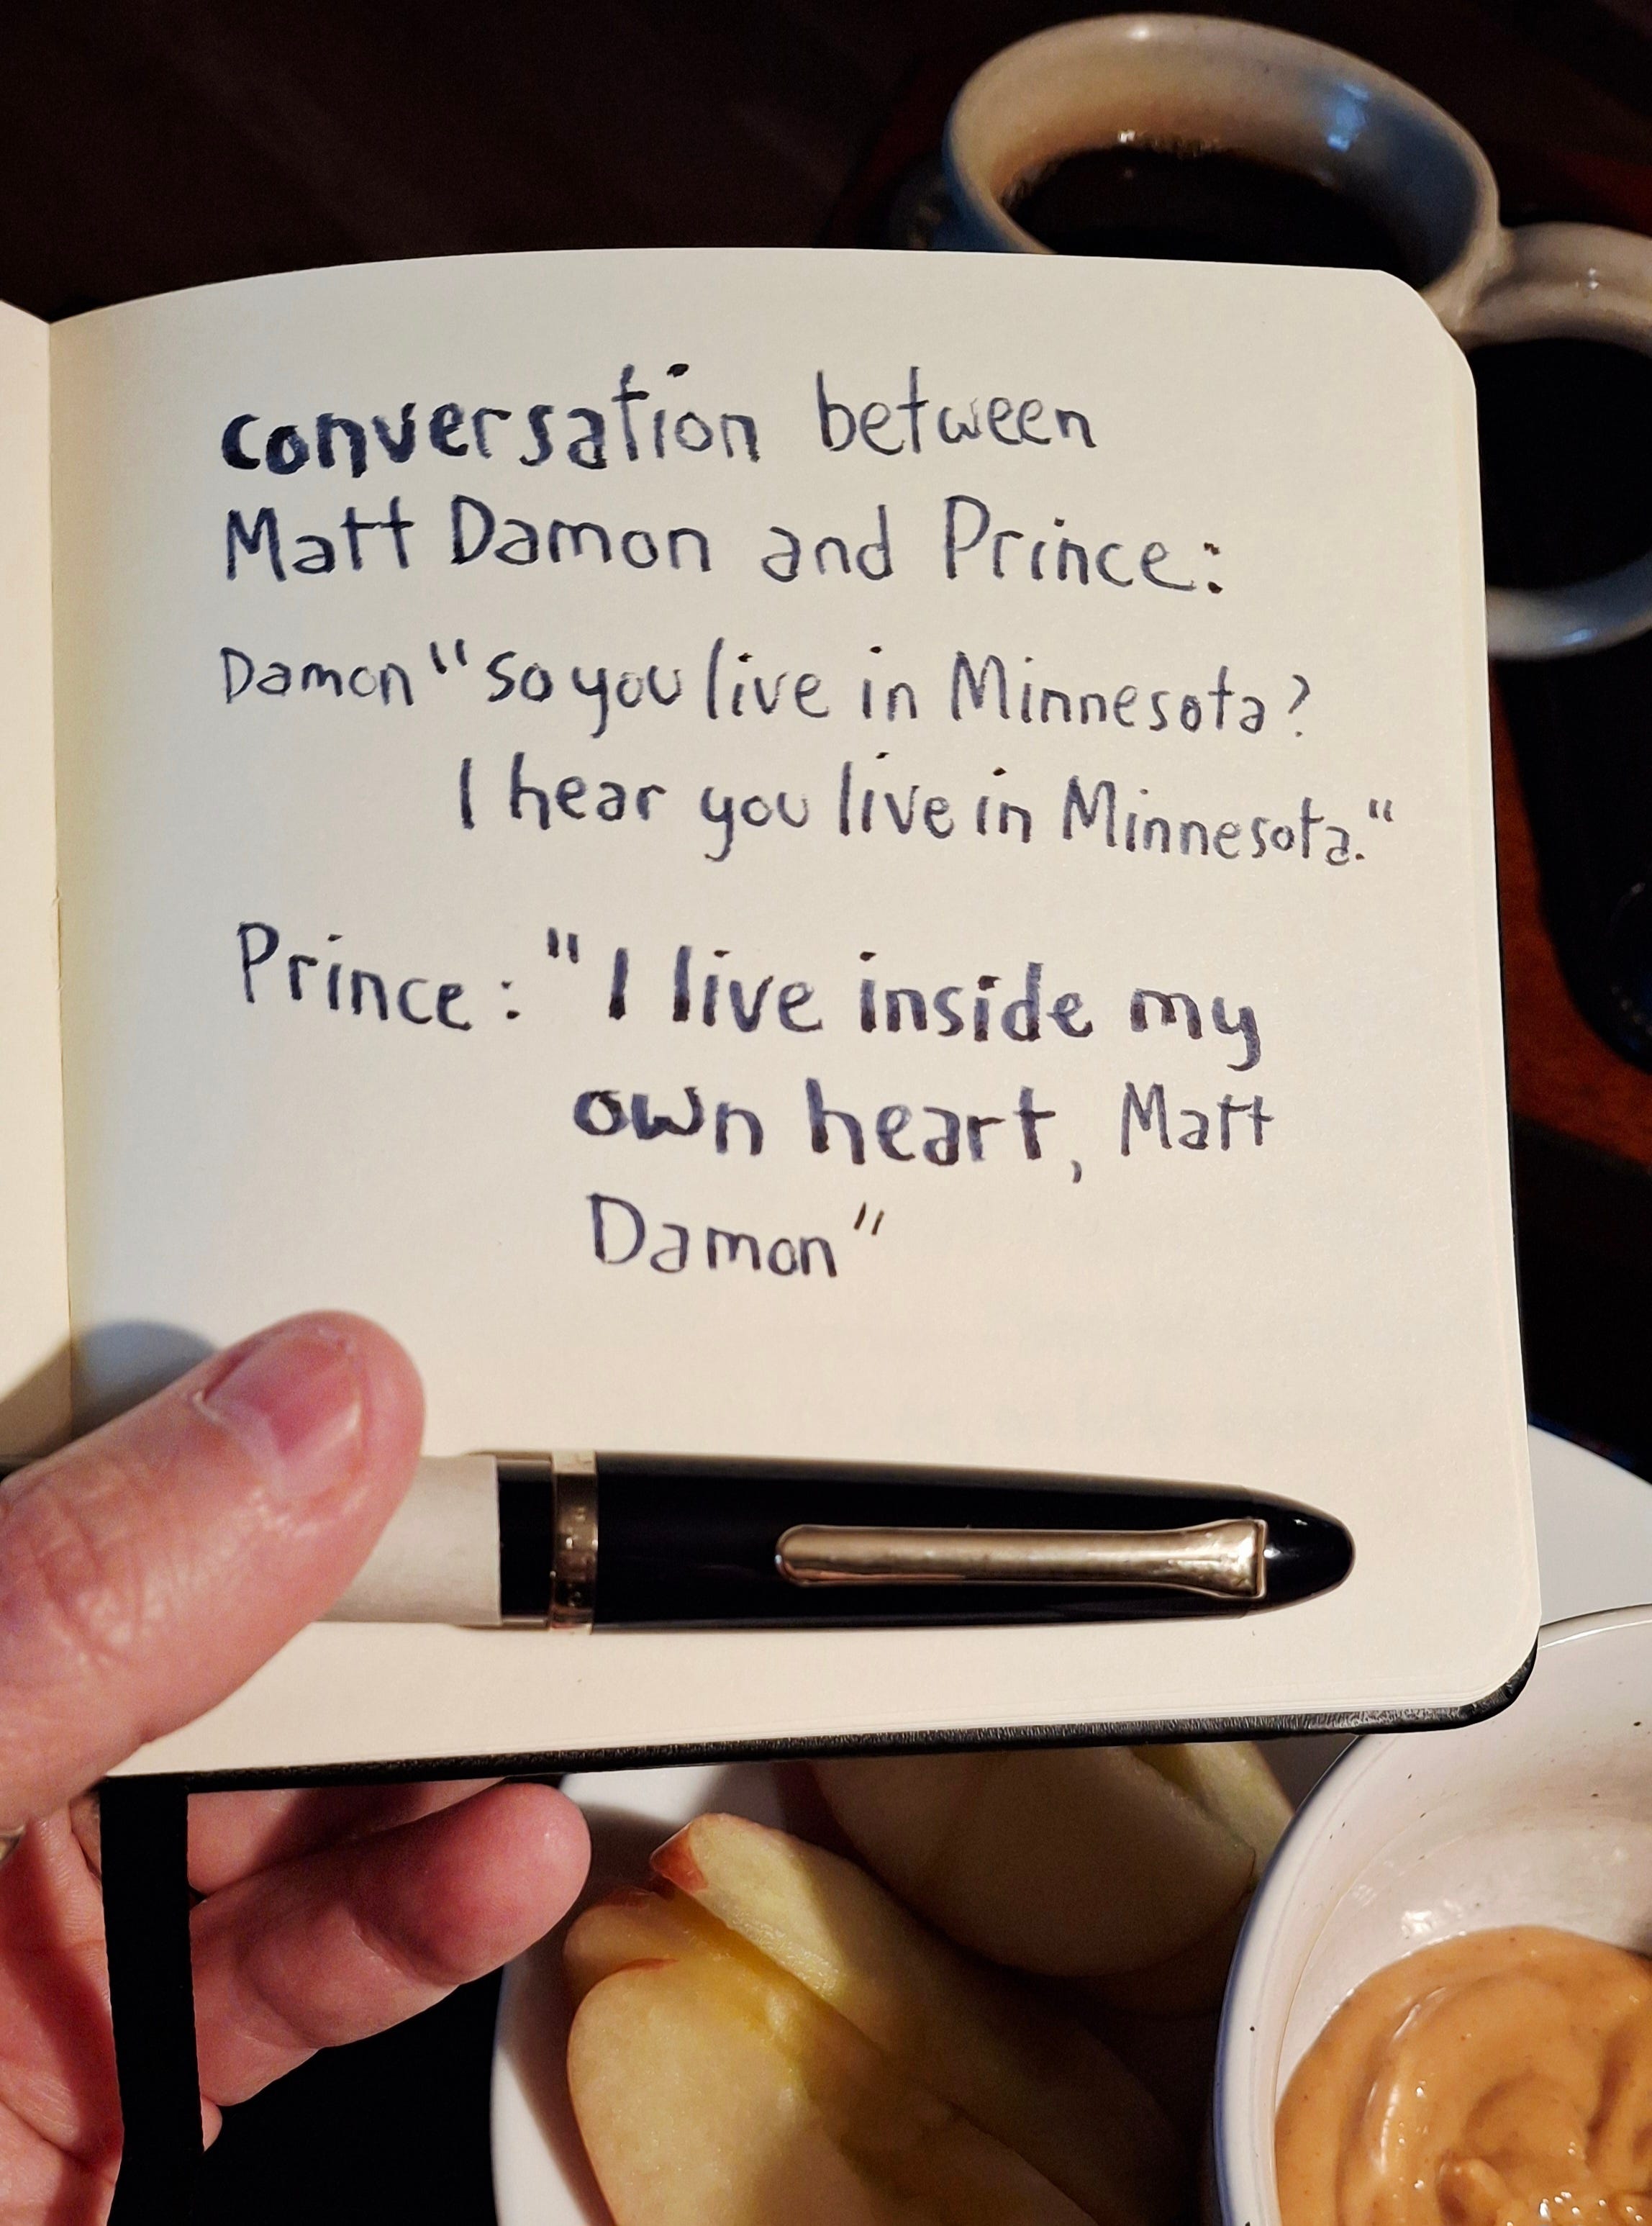 conversation between
Matt Damon and Prince:
Damon "So you live in Minnesota?
I hear you live in Minnesota."
Prince: "I live inside my
own heart, Matt
Damon"